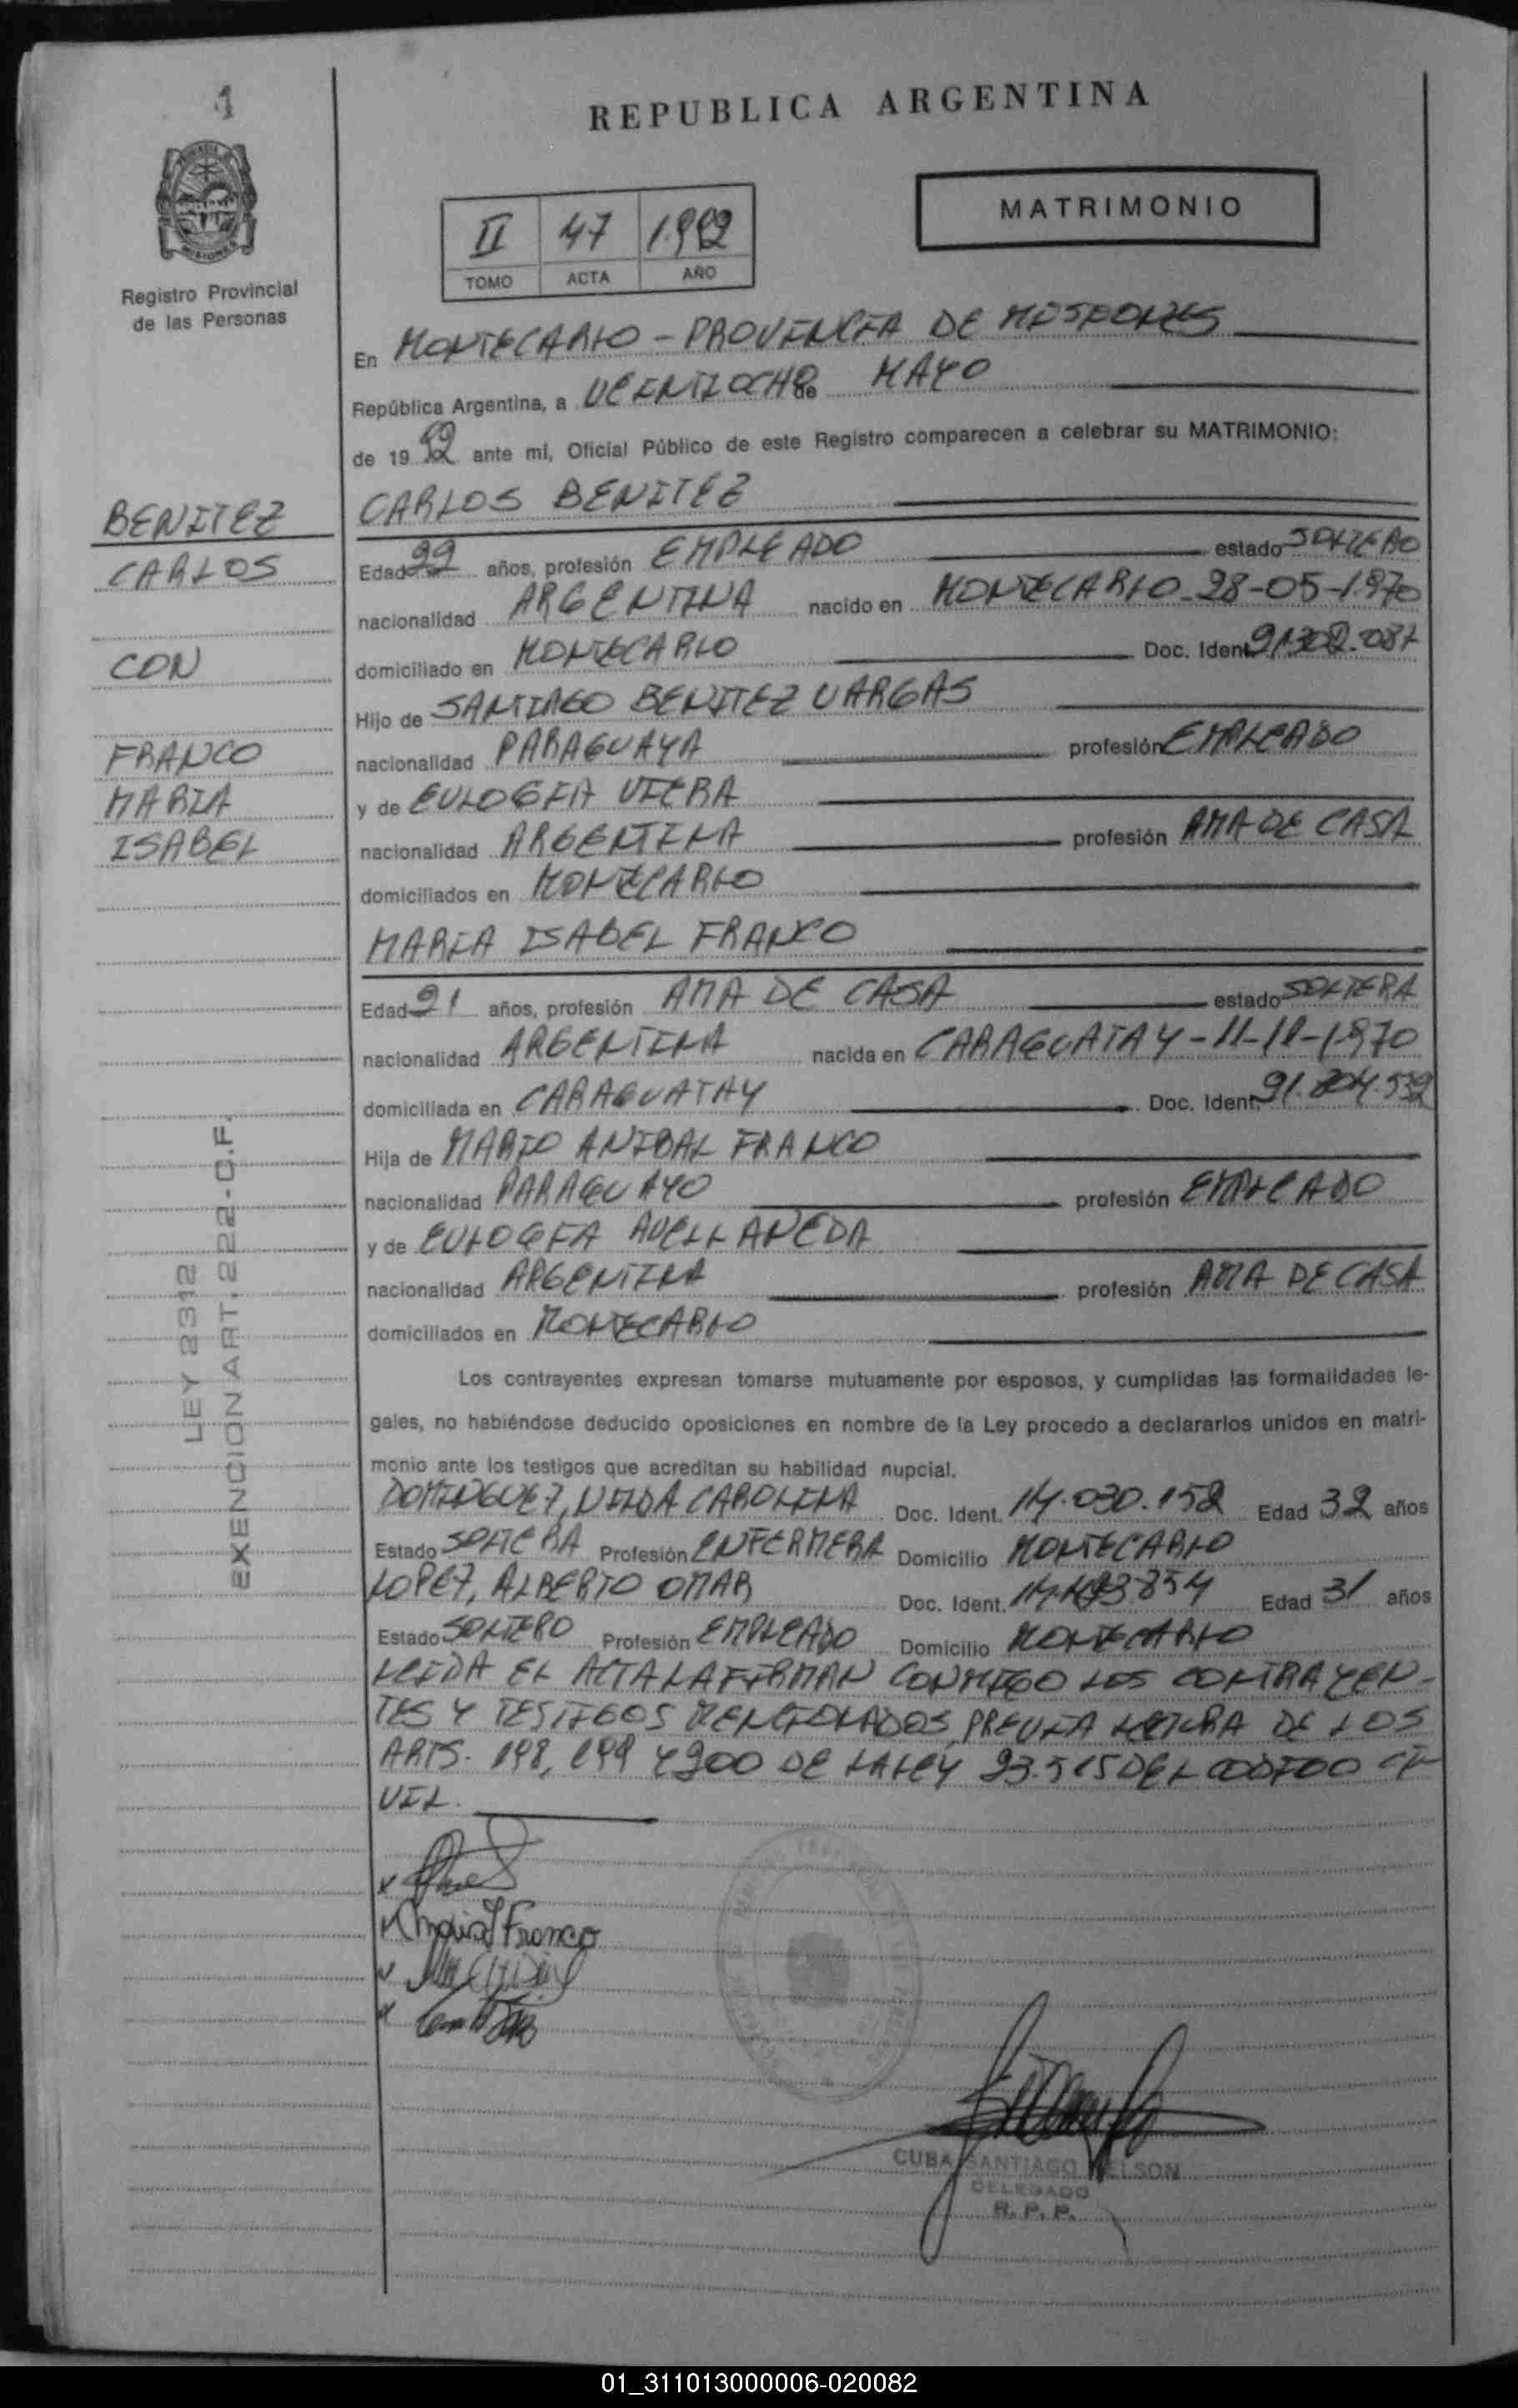 1
REPUBLICA ARGENTINA
MATRIMONIO
II 47 1.992
TOMO ACTA AÑO
Registro Provincial
de las Personas
En MONTECARLO - PROVINCIA DE MISIONES
República Argentina, a VEINTIOCHO de MAYO
de 19 92 ante mi, Oficial Público de este Registro comparecen a celebrar su MATRIMONIO:
BENITEZ
CARLOS
CON
FRANCO
MARIA
ISABEL
CARLOS BENITEZ
Edad 22 años, profesión EMPLEADO estado SOLTERO
nacionalidad ARGENTINA nacido en MONTECARLO - 28-05-1970
domiciliado en MONTECARLO Doc. Ident. 21.302.087
Hijo de SANTIAGO BENITEZ VARGAS
nacionalidad PARAGUAYA profesión EMPLEADO
y de EULOGIA VIERA
nacionalidad ARGENTINA profesión AMA DE CASA
domiciliados en MONTECARLO
MARIA ISABEL FRANCO
Edad 21 años, profesión AMA DE CASA estado SOLTERA
nacionalidad ARGENTINA nacida en CARAGUATAY - 11-11-1970
domiciliada en CARAGUATAY Doc. Ident.
Hija de MARIO ANIBAL FRANCO
nacionalidad PARAGUAYO profesión EMPLEADO
y de EULOGIA AVELLANEDA
nacionalidad ARGENTINA profesión AMA DE CASA
domiciliados en MONTECARLO
LEY 2312
EXENCION ART. 222-C.F.
Los contrayentes expresan tomarse mutuamente por esposos, y cumplidas las formalidades le-
gales, no habiéndose deducido oposiciones en nombre de la Ley procedo a declararlos unidos en matri-
monio ante los testigos que acreditan su habilidad nupcial.
DOMINGUEZ, NILDA CAROLINA Doc. Ident. 14.030.152 Edad 32 años
Estado SOLTERA Profesión ENFERMERA Domicilio MONTECARLO
LOPEZ, ALBERTO OMAR Doc. Ident. Edad 31 años
Estado SOLTERO Profesión EMPLEADO Domicilio MONTECARLO
LEIDA EL ACTA LA FIRMAN CONMIGO LOS CONTRAYEN-
TES Y TESTIGOS MENCIONADOS, PREVIA LECTURA DE LOS
ARTS. 198, 199 Y 200 DE LA LEY 23.515 DEL CODIGO CI-
VIL.
Maria I Franco
CUBA SANTIAGO NELSON
DELEGADO
R. P. P.
01_311013000006-020082